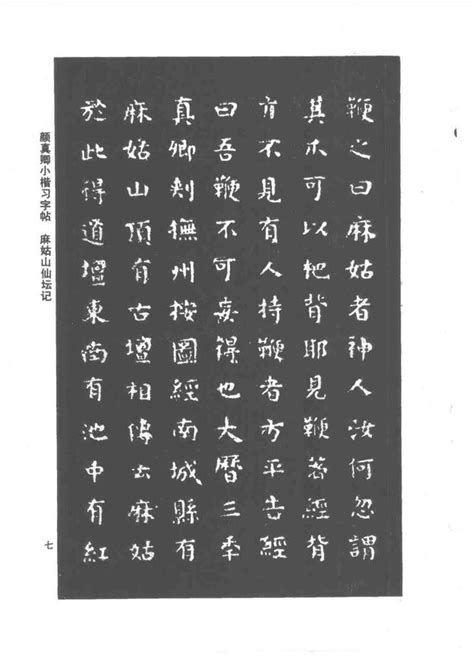 鞭之曰麻姑者神人汝何忽謂
其爪可以杷背耶見鞭著經背
亦不見有人持鞭者方平告經
曰吾鞭不可妄得也大曆三年
真卿刺撫州按圖經南城縣有
麻姑山頂有古壇相傳云麻姑
於此得道壇東南有池中有紅
颜真卿小楷习字帖 麻姑山仙坛记
七